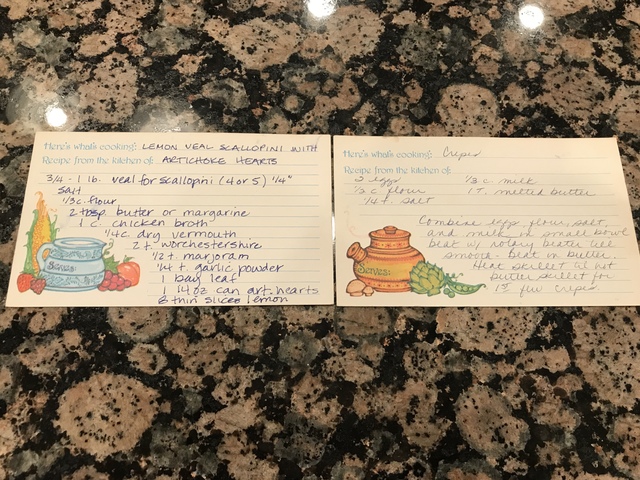 Here's what's cooking: LEMON VEAL SCALLOPINI WITH
Recipe from the kitchen of: ARTICHOKE HEARTS
3/4 - 1 lb. veal for scallopini (4 or 5) 1/4"
salt
1/3 c. flour
2 tbsp butter or margarine
1 c. chicken broth
1/4 c. dry vermouth
2 t. worchestershire
1/2 t. marjoram
1/4 t. garlic powder
1 bay leaf
1 14 oz can art. hearts
6 thin slices lemon
Serves:
Here's what's cooking: Crepes
Recipe from the kitchen of:
eggs 1/3 c. milk
1/3 c flour 1 T. melted butter
1/4 t. salt
Combine eggs, flour, salt,
and milk in small bowl
beat w/ rotary beater till
smooth. Beat in butter.
Heat skillet til hot
butter skillet for
1st few crepes
Serves: